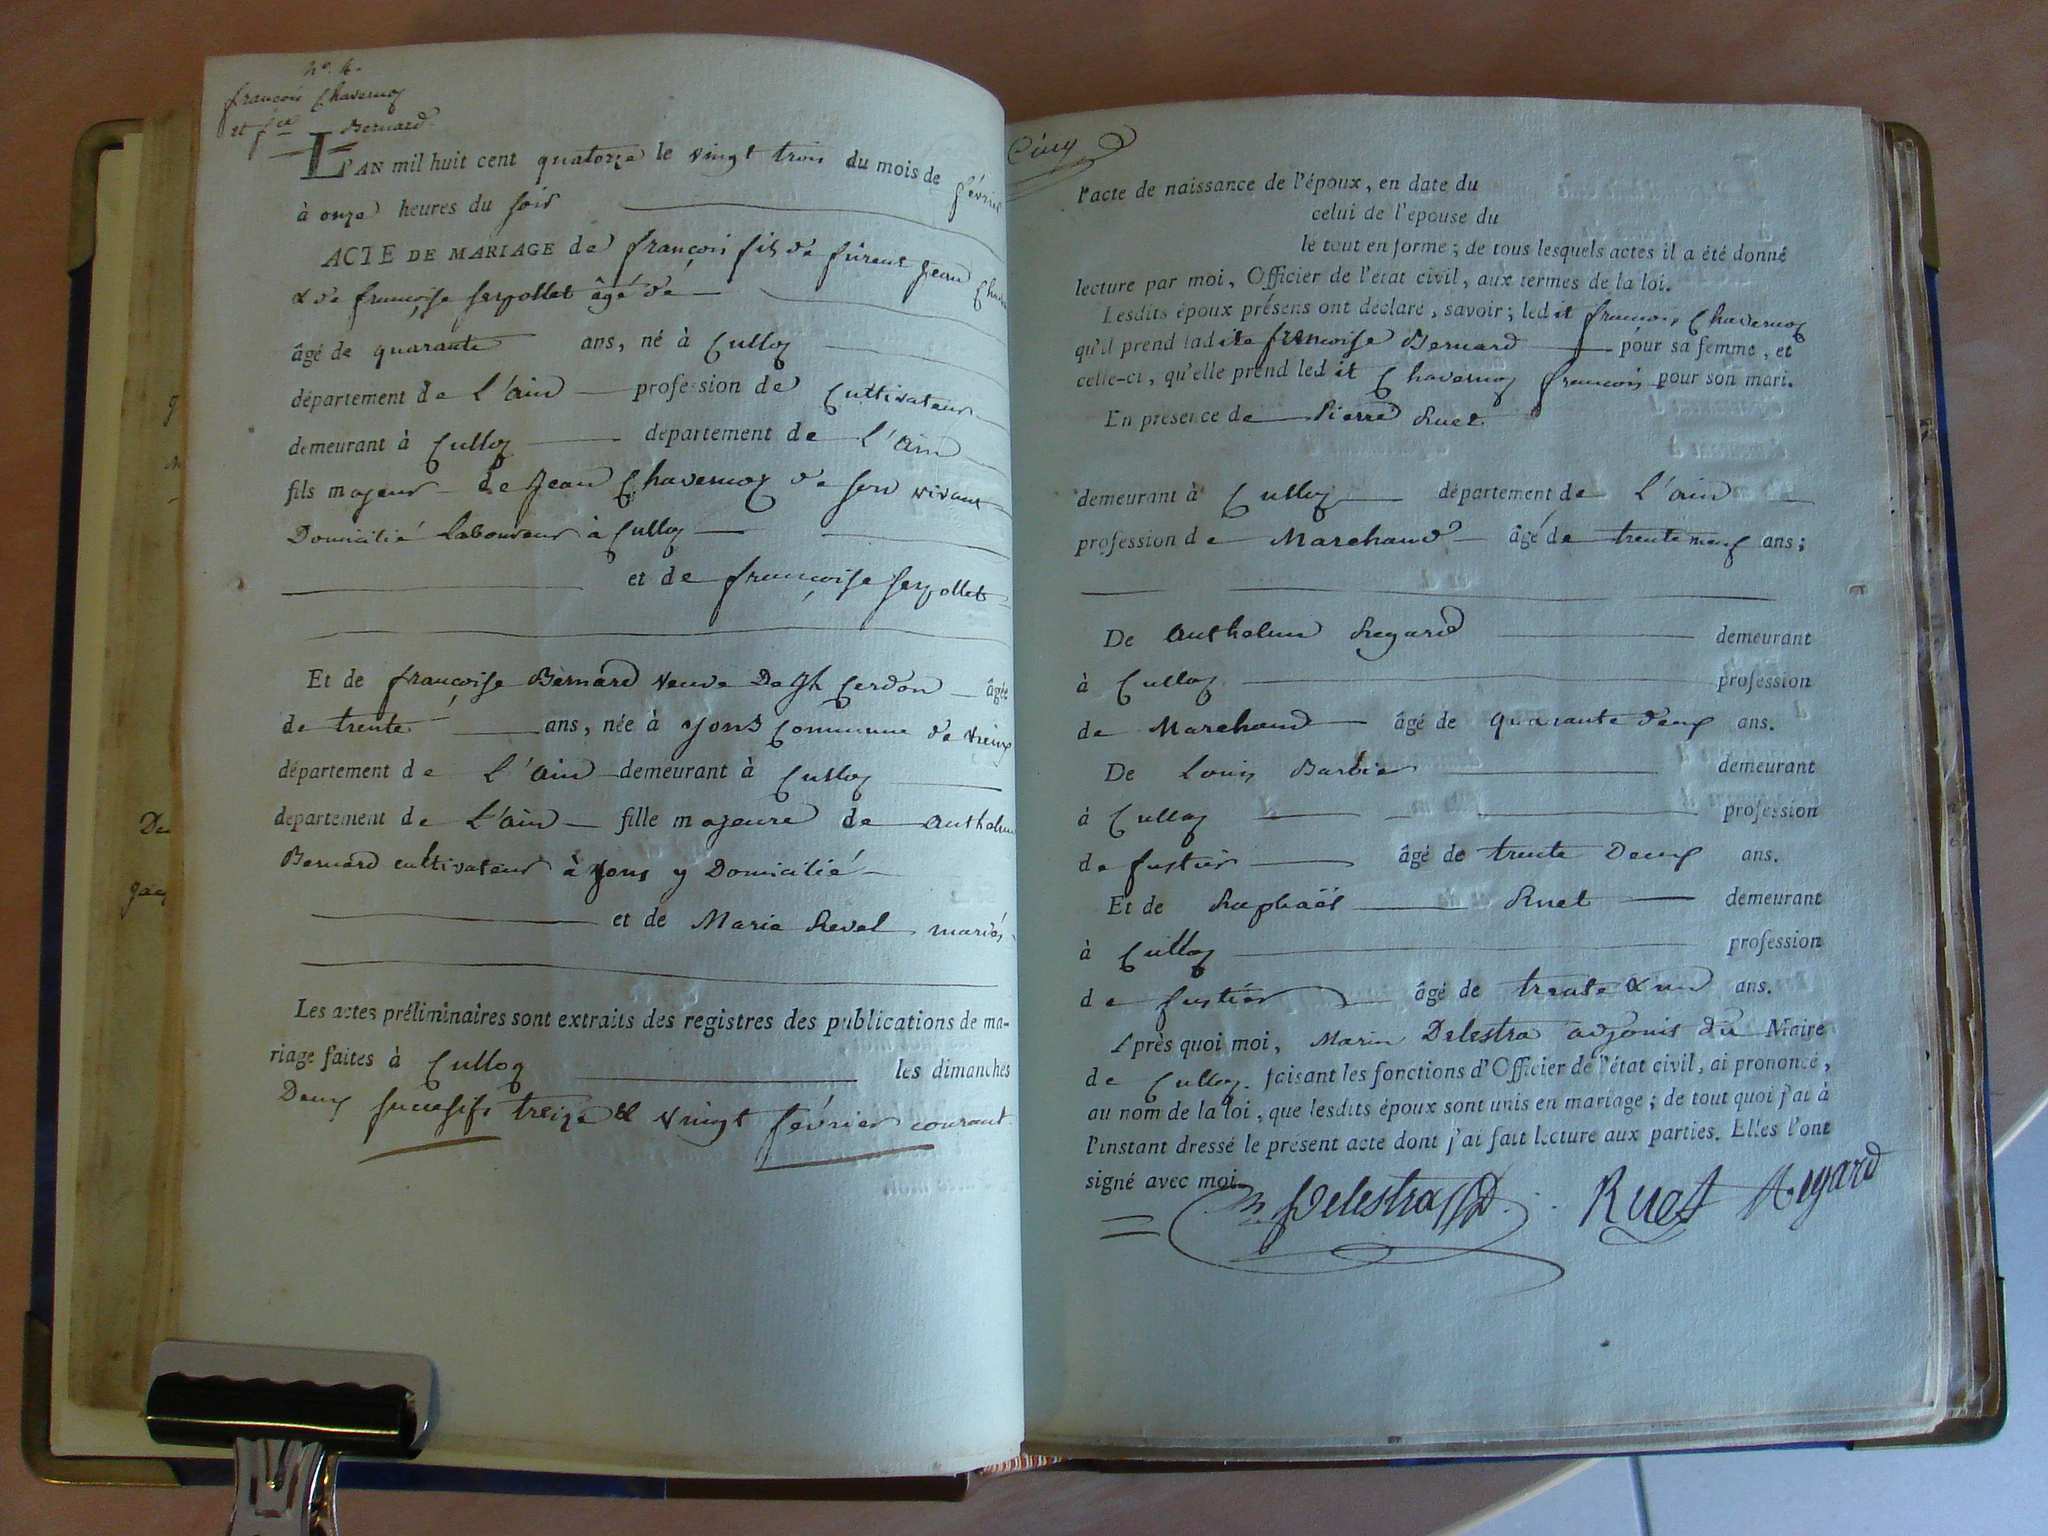 n.° 4.
françois Chavernoz
et f.se Bernard
L'AN mil huit cent quatorze le vingt trois du mois de février
à onze heures du soir
ACTE DE MARIAGE de françois fils de fûreut Jean Chav
& de françoise serpollet âgé de
âgé de quarante ans, né à Culloz
département de L'ain profession de Cultivateur
demeurant à Culloz département de L'ain
fils majeur de Jean Chavernoz de son vivant
Domicilié Laboureur à Culloz
et de françoise serpollet
Et de françoise Bernard veuve De Jh Cerdon âgée
de trente ans, née à yons Commune de vieux
département de L'ain demeurant à Culloz
département de L'ain fille majeure de anthelme
Bernard cultivateur à yons y Domicilié
et de Marie Reval mariés
Les actes préliminaires sont extraits des registres des publications de ma-
riage faites à Culloz les dimanches
Deux succesifs treize & vingt février courant
Cinq
l'acte de naissance de l'époux, en date du
celui de l'épouse du
le tout en forme ; de tous lesquels actes il a été donné
lecture par moi, Officier de l'état civil, aux termes de la loi.
Lesdits époux présens ont déclaré, savoir ; ledit françois Chavernoz
qu'il prend ladite françoise Bernard pour sa femme, et
celle-ci, qu'elle prend ledit Chavernoz françois pour son mari.
En présence de Pierre Ruet
demeurant à Culloz département de L'ain
profession de Marchand âgé de trente neuf ans ;
De anthelme Regard demeurant
à Culloz profession
de Marchand âgé de quarante deux ans.
De Louis Barbier demeurant
à Culloz profession
de fustier âgé de trente Deux ans.
Et de Raphaël Ruet demeurant
à Culloz profession
de fustier âgé de trente & un ans.
Après quoi moi, Marin Delestra adjoint du Maire
de Culloz. faisant les fonctions d'Officier de l'état civil, ai prononcé,
au nom de la loi, que lesdits époux sont unis en mariage ; de tout quoi j'ai à
l'instant dressé le présent acte dont j'ai fait lecture aux parties. Elles l'ont
signé avec moi.
M Delestra Ruet Regard